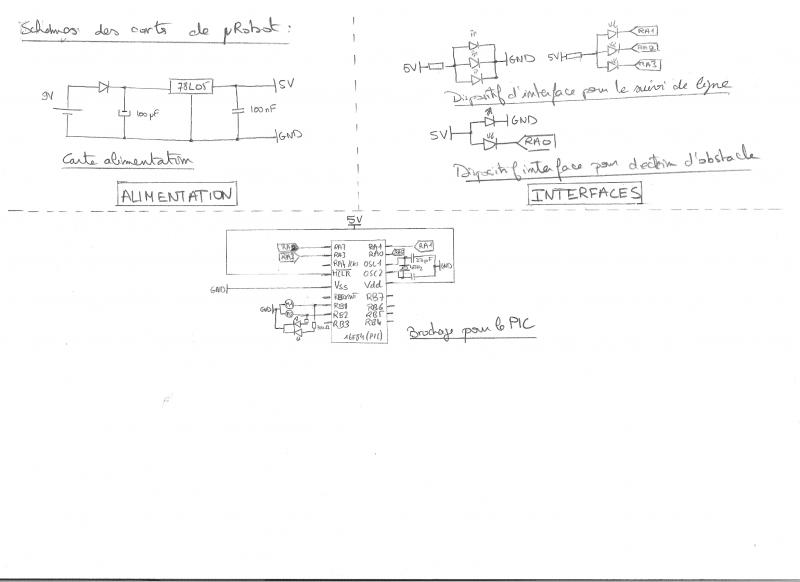 Schémas des carts de µRobot :
9V
78L05
5V
100µF
100nF
GND
Carte alimentation
ALIMENTATION
5V
GND
5V
RA1
RA2
RA3
Dispositif d'interface pour le suivi de ligne
5V
GND
RA0
Dispositif interface pour dection d'obstacle
INTERFACES
5V
RA2
RA1
RA1
RA3
RA3
RA0
RA4
OSC1
22pF
MCLR
OSC2
GND
GND
Vss
Vdd
RB7
GND
RB1
RB6
RB2
RB5
RB3
RB4
16F84 (PIC)
Brochage pour le PIC